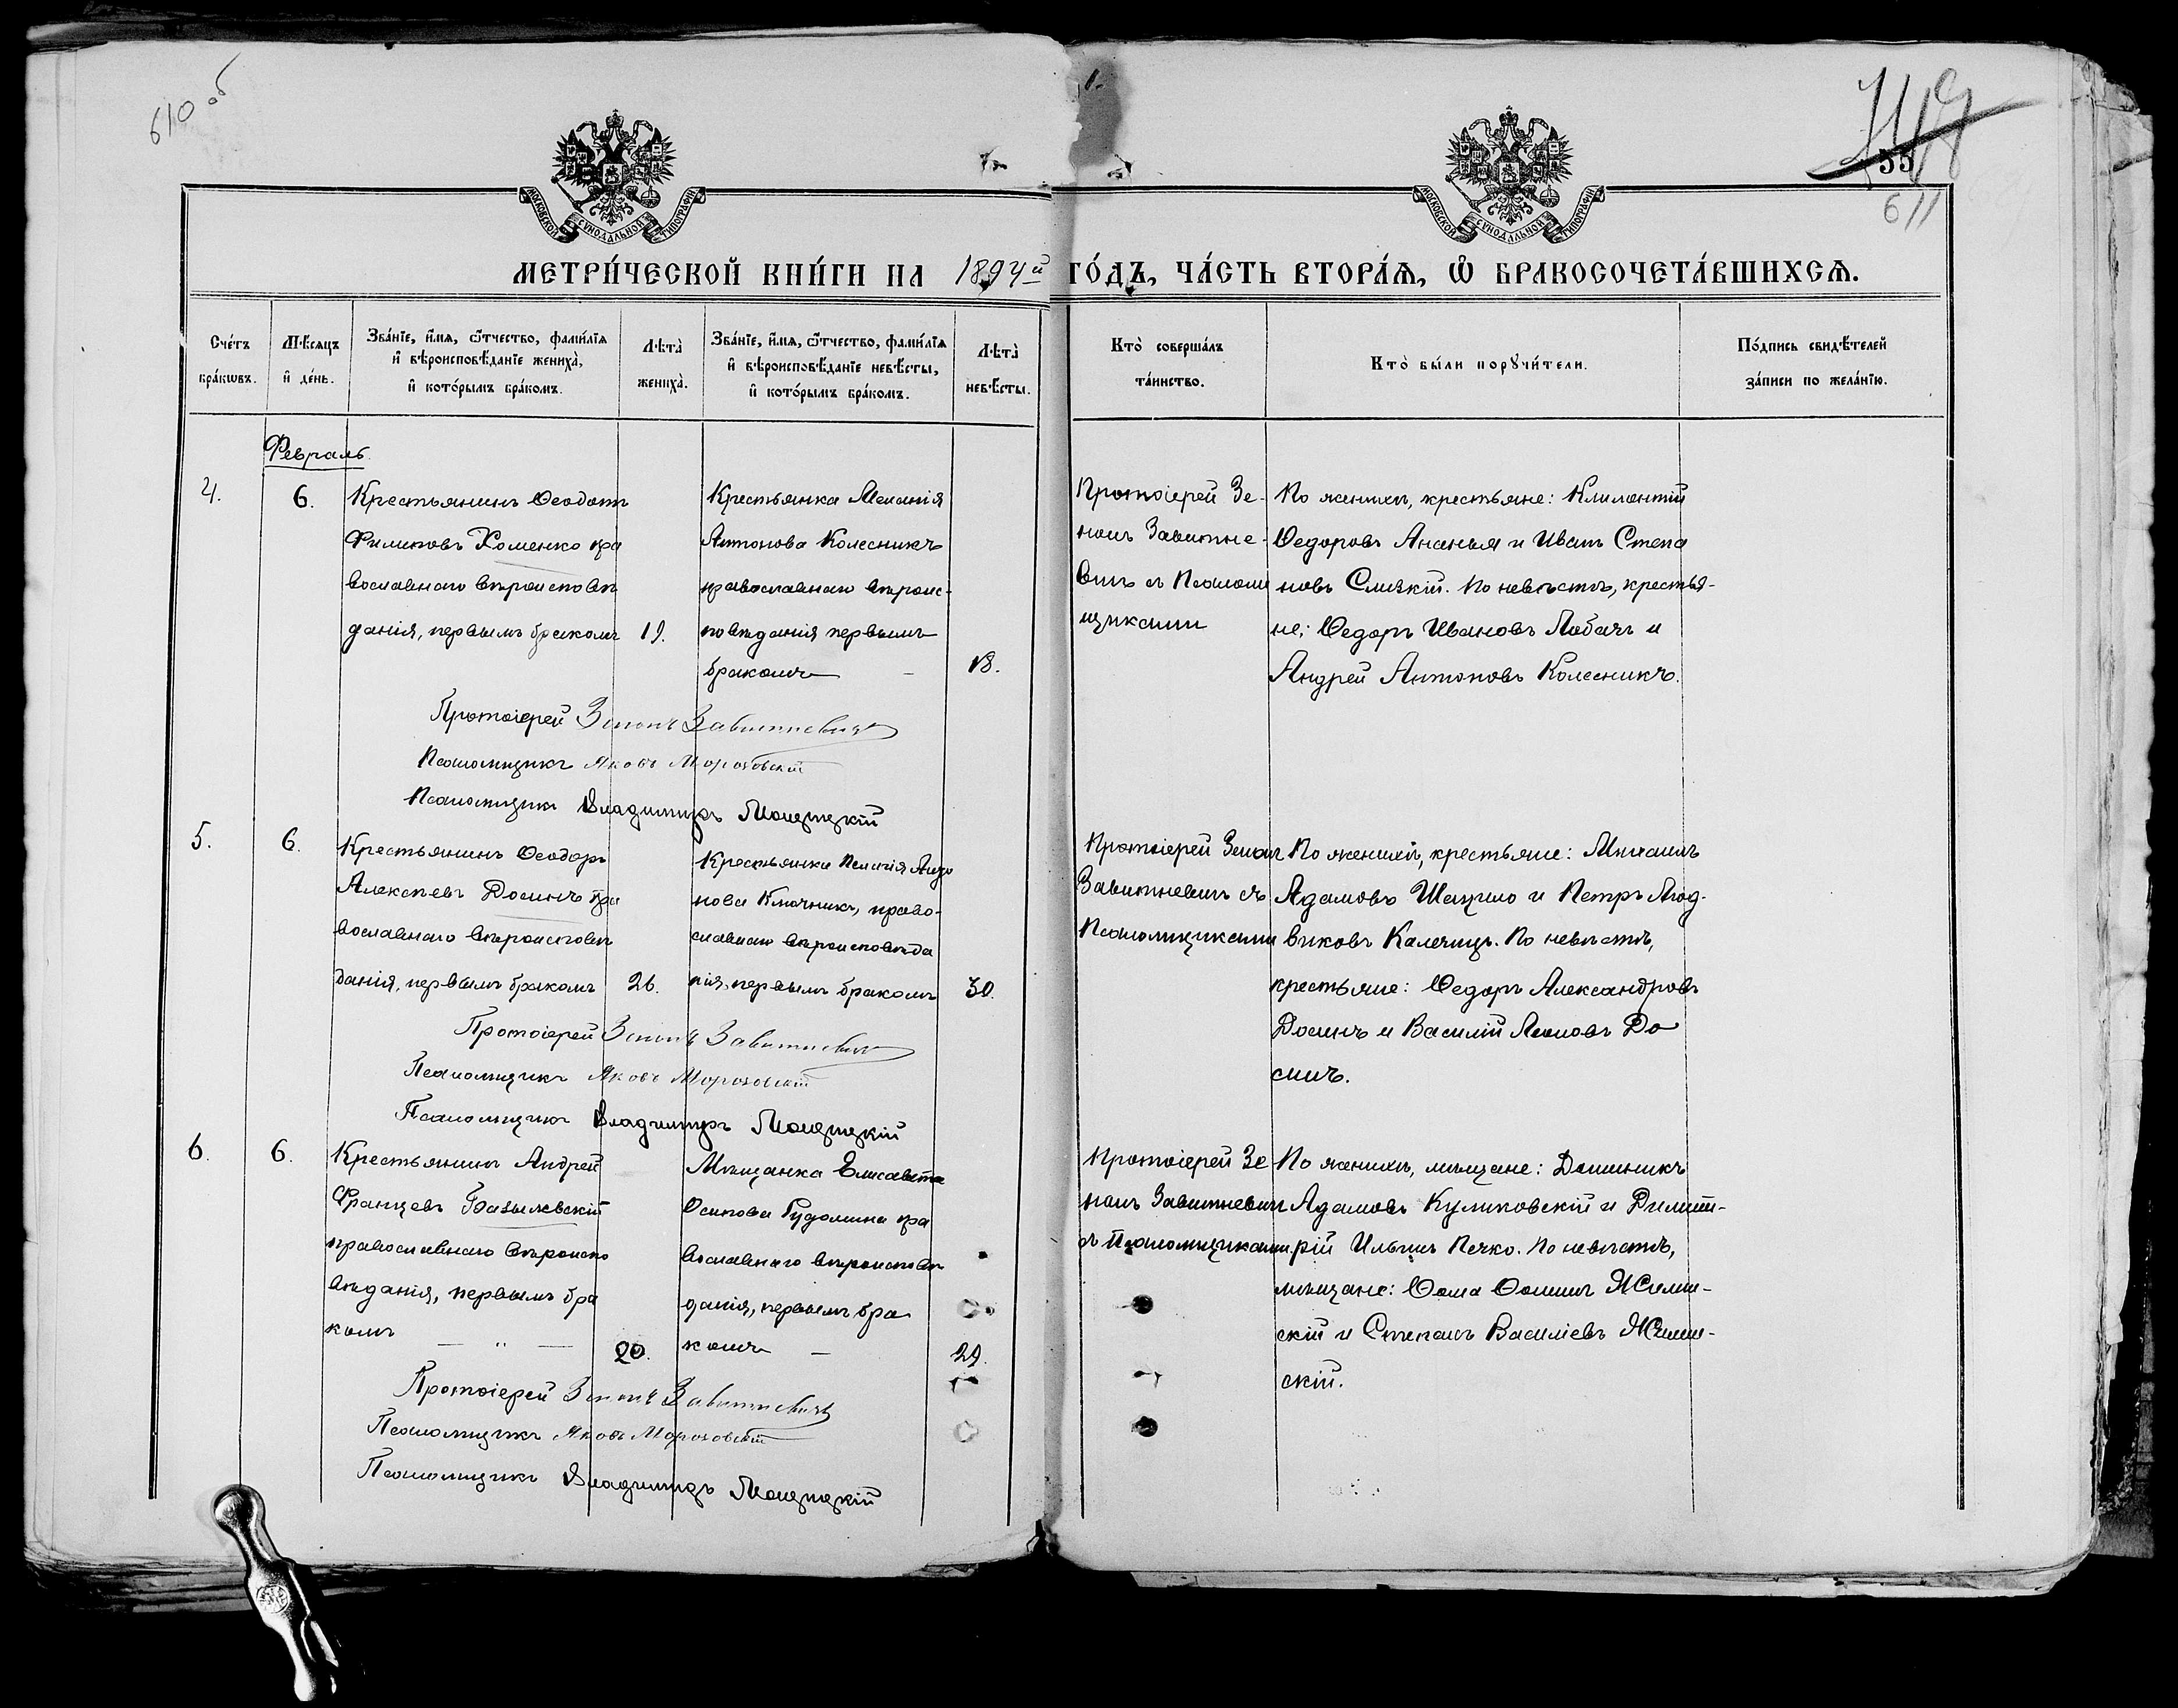 610 об
55
611
МОСКОВСКОЙ СѴНОДАЛЬНОЙ ТИПОГРАФІИ
МОСКОВСКОЙ СѴНОДАЛЬНОЙ ТИПОГРАФІИ
МЕТРИ́ЧЕСКОЙ КНИ́ГИ НА 1894й ГО́ДЪ, ЧА́СТЬ ВТОРА́Я, Ѽ БРАКОСОЧЕТА́ВШИХСЯ.
Сче́тъ бра́кѡвъ.
Мѣ́сяцъ и҆ де́нь.
Зва́нїе, и҆́мя, ѻ҆́тчество, фами́лїя и҆ вѣроисповѣ́данїе жениха̀, и҆ кото́рымъ бра́комъ.
Лѣта̀ жениха̀.
Зва́нїе, и҆́мя, ѻ҆́тчество, фами́лїя и҆ вѣроисповѣ́данїе невѣ́сты, и҆ кото́рымъ бра́комъ.
Лѣта̀ невѣ́сты.
Кто̀ соверша́лъ та́инство.
Кто̀ бы́ли порꙋчи́тели.
По́дпись свидѣ́телей за́писи по жела́нїю.
Февраль
4.
6.
Крестьянинъ Ѳеодотъ
Филиповъ Хоменко пра
вославнаго вѣроисповѣ
данія, первымъ бракомъ
19.
Крестьянка Меланія
Антонова Колесникъ
православнаго вѣроис-
повѣданія первымъ
бракомъ
18.
Протоіерей Зе-
нонъ Завитне-
вичъ съ Псалом
щиками
По женихѣ, крестьяне: Климентій
Ѳедоровъ Ананья и Иванъ Степа
новъ Слизкій. По невѣстѣ, крестья-
не: Ѳедоръ Ивановъ Лобачъ и
Андрей Антоновъ Колесникъ.
Протоіерей Зенонъ Завитневичъ
Псаломщикъ Яковъ Морозовскій
Псаломщикъ Владимиръ
5.
6.
Крестьянинъ Ѳеодоръ
Алексѣевъ Досинъ пра
вославнаго вѣроисповѣ
данія, первымъ бракомъ
26.
Крестьянка Пелагія
нова Ключникъ, право-
славнаго вѣроисповѣда
нія, первымъ бракомъ
30.
Протоіерей Зенонъ
Завитневичъ съ
Псаломщиками
По женихѣ, крестьяне: Михаилъ
Адамовъ Шацило и Петръ Люд-
виковъ Калечицъ. По невѣстѣ,
крестьяне: Ѳедоръ Александровъ
Досинъ и Василій Леоновъ До
синъ.
Протоіерей Зенонъ Завитневичъ
Псаломщикъ Яковъ Морозовскій
Псаломщикъ Владимиръ
6.
6.
Крестьянинъ Андрей
Францевъ Базылевскій
православнаго вѣроиспо
вѣданія, первымъ бра
комъ
20.
Мѣщанка Елисавета
Осипова Гудолина пра
вославнаго вѣроисповѣ
данія, первымъ бра
комъ
29.
Протоіерей Зе
нонъ Завитневичъ
съ Псаломщиками.
По женихѣ, мѣщане: Доминикъ
Адамовъ Куликовскій и Димит-
рій Ильинъ Печко. По невѣстѣ,
мѣщане: Ѳома Ѳоминъ Жилин-
скій и Степанъ Василіевъ Жилин-
скій.
Протоіерей Зенонъ Завитневичъ
Псаломщикъ Яковъ Морозовскій
Псаломщикъ Владимиръ